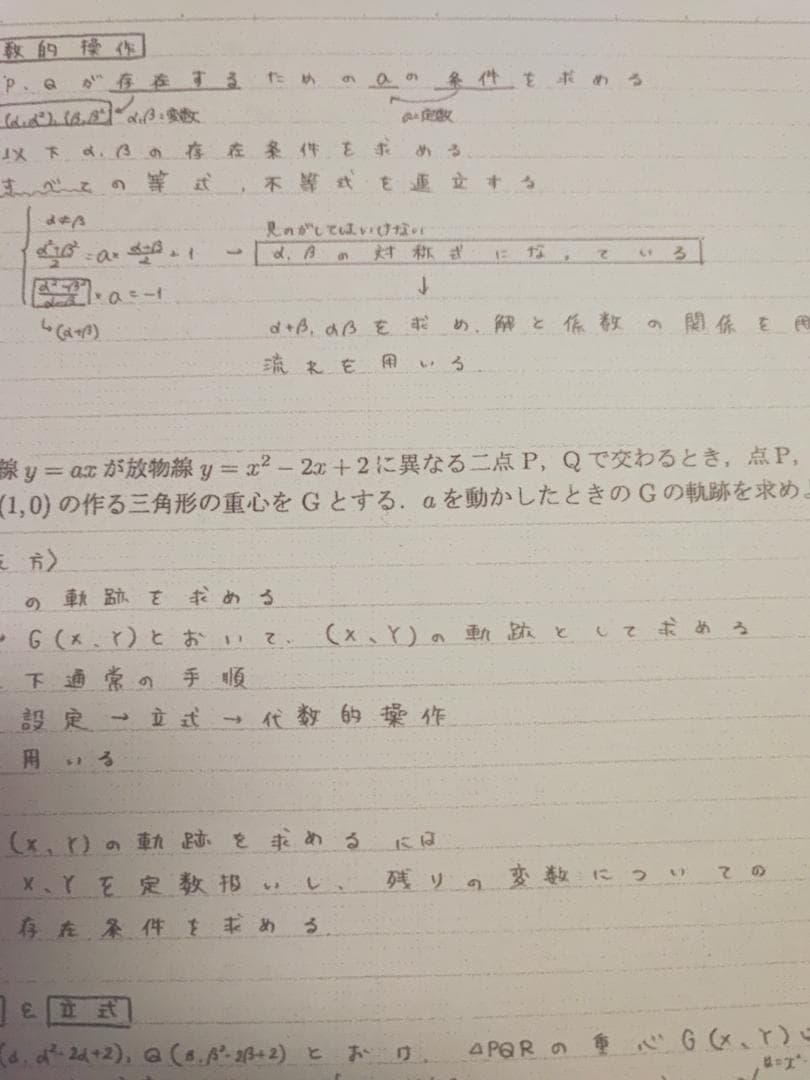 数的操作
P、Qが存在するためのaの条件を求める
(α,α²),(β,β²) α,β=変数 a=定数
以下α,βの存在条件を求める
すべての等式,不等式を連立する
α≠β
見のがしてはいけない
(α²+β²)/2=a×(α+β)/2+1 → α,βの対称式になっている
(α²-β²)/(α-β)×a=-1 ↓
↳(α+β) α+β,αβを求め、解と係数の関係を用
流れを用いる
線 y = ax が放物線 y = x² − 2x + 2 に異なる二点 P, Q で交わるとき, 点 P,
(1, 0) の作る三角形の重心を G とする. a を動かしたときの G の軌跡を求めよ
え方〉
の軌跡を求める
G(X、Y)とおいて、(X、Y)の軌跡として求める
下通常の手順
設定→立式→代数的操作
用いる
(X、Y)の軌跡を求めるには
X、Yを定数扱いし、残りの変数についての
存在条件を求める
と 立式
(α,α²-2α+2),Q(β,β²-2β+2)とおけ、△PQRの重心G(X、Y)